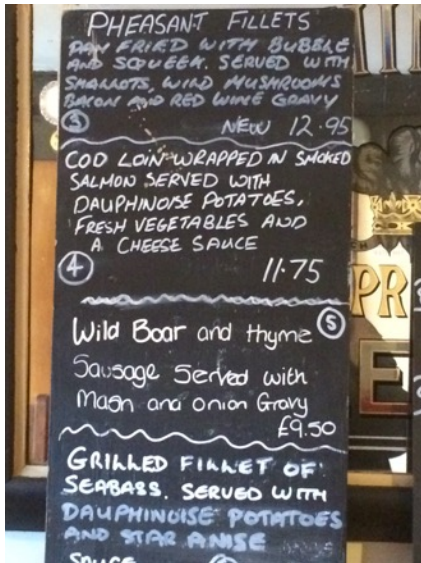 PHEASANT FILLETS
PAN FRIED WITH BUBBLE
AND SQUEEK. SERVED WITH
SHALLOTS, WILD MUSHROOMS
BACON AND RED WINE GRAVY
3 NEW 12.95
COD LOIN WRAPPED IN SMOKED
SALMON SERVED WITH
DAUPHINOISE POTATOES,
FRESH VEGETABLES AND
A CHEESE SAUCE
4 11.75
Wild Boar and thyme 5
Sausage Served with
Mash and onion Gravy
£9.50
GRILLED FILLET OF
SEABASS. SERVED WITH
DAUPHINOISE POTATOES
AND STAR ANISE
SAUCE
PR
E